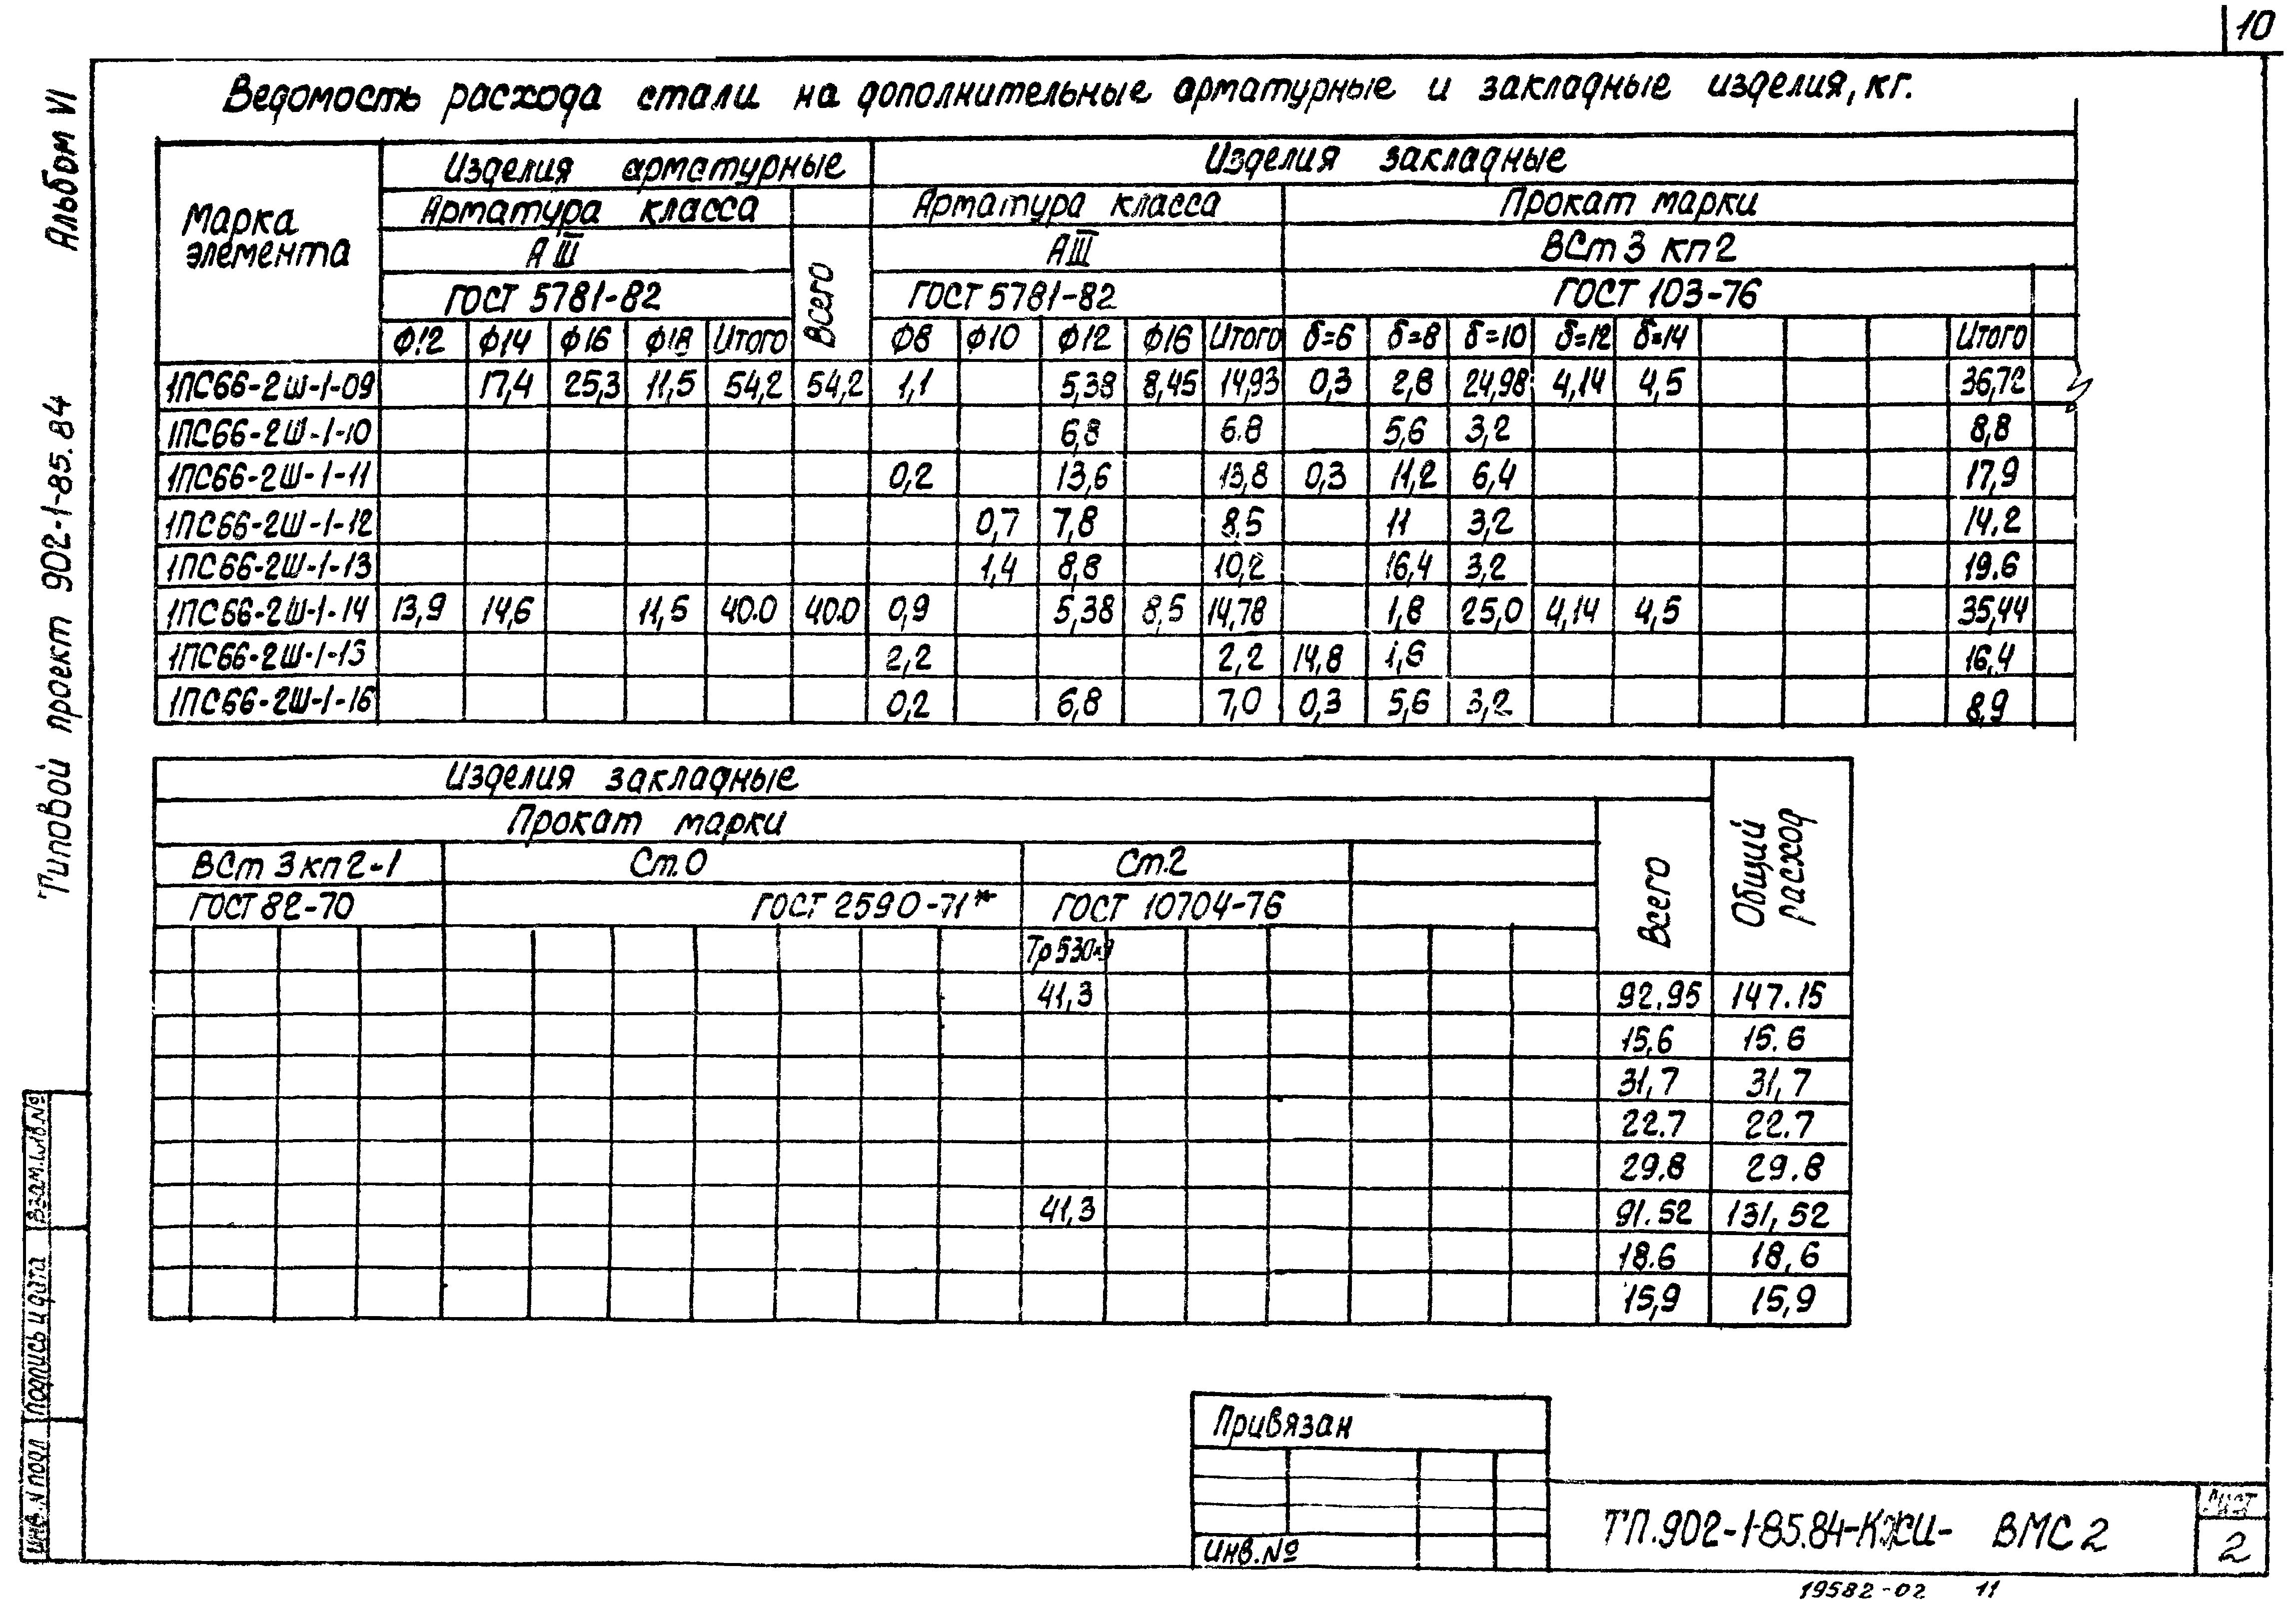 10
Ведомость расхода стали на дополнительные арматурные и закладные изделия, кг.
Альбом VI
Типовой проект 902-1-85.84
Марка элемента
Изделия арматурные
Изделия закладные
Арматура класса
Всего
Арматура класса
Прокат марки
АIII
АIII
ВСт 3 кп 2
ГОСТ 5781-82
ГОСТ 5781-82
ГОСТ 103-76
Ф12 Ф14 Ф16 Ф18 Итого Ф8 Ф10 Ф12 Ф16 Итого δ=6 δ=8 δ=10 δ=12 δ=14 Итого
1ПС66-2Ш-1-09 17,4 25,3 11,5 54,2 54,2 1,1 5,38 8,45 14,93 0,3 2,8 24,98 4,14 4,5 36,72
1ПС66-2Ш-1-10 6,8 6.8 5,6 3,2 8,8
1ПС66-2Ш-1-11 0,2 13,6 13,8 0,3 11,2 6,4 17,9
1ПС66-2Ш-1-12 0,7 7,8 8,5 11 3,2 14,2
1ПС66-2Ш-1-13 1,4 8,8 10,2 16,4 3,2 19.6
1ПС66-2Ш-1-14 13,9 14,6 11,5 40.0 40.0 0,9 5,38 8,5 14,78 1,8 25,0 4,14 4,5 35,44
1ПС66-2Ш-1-15 2,2 2,2 14,8 1,6 16,4
1ПС66-2Ш-1-16 0,2 6,8 7,0 0,3 5,6 3,2 8,9
Изделия закладные
Общий расход
Прокат марки
Всего
ВСт 3 кп 2-1 Ст.0 Ст.2
ГОСТ 82-70 ГОСТ 2590-71* ГОСТ 10704-76
Тр 530×9
41,3 92.95 147.15
15,6 15.6
31,7 31,7
22.7 22.7
29.8 29.8
41,3 91.52 131,52
18.6 18,6
15,9 15,9
Взам.инв.№
Подпись и дата
Инв.N подл
Привязан
Инв.№
ТП.902-1-85.84-КЖИ- ВМС 2
Лист
2
19582-02 11